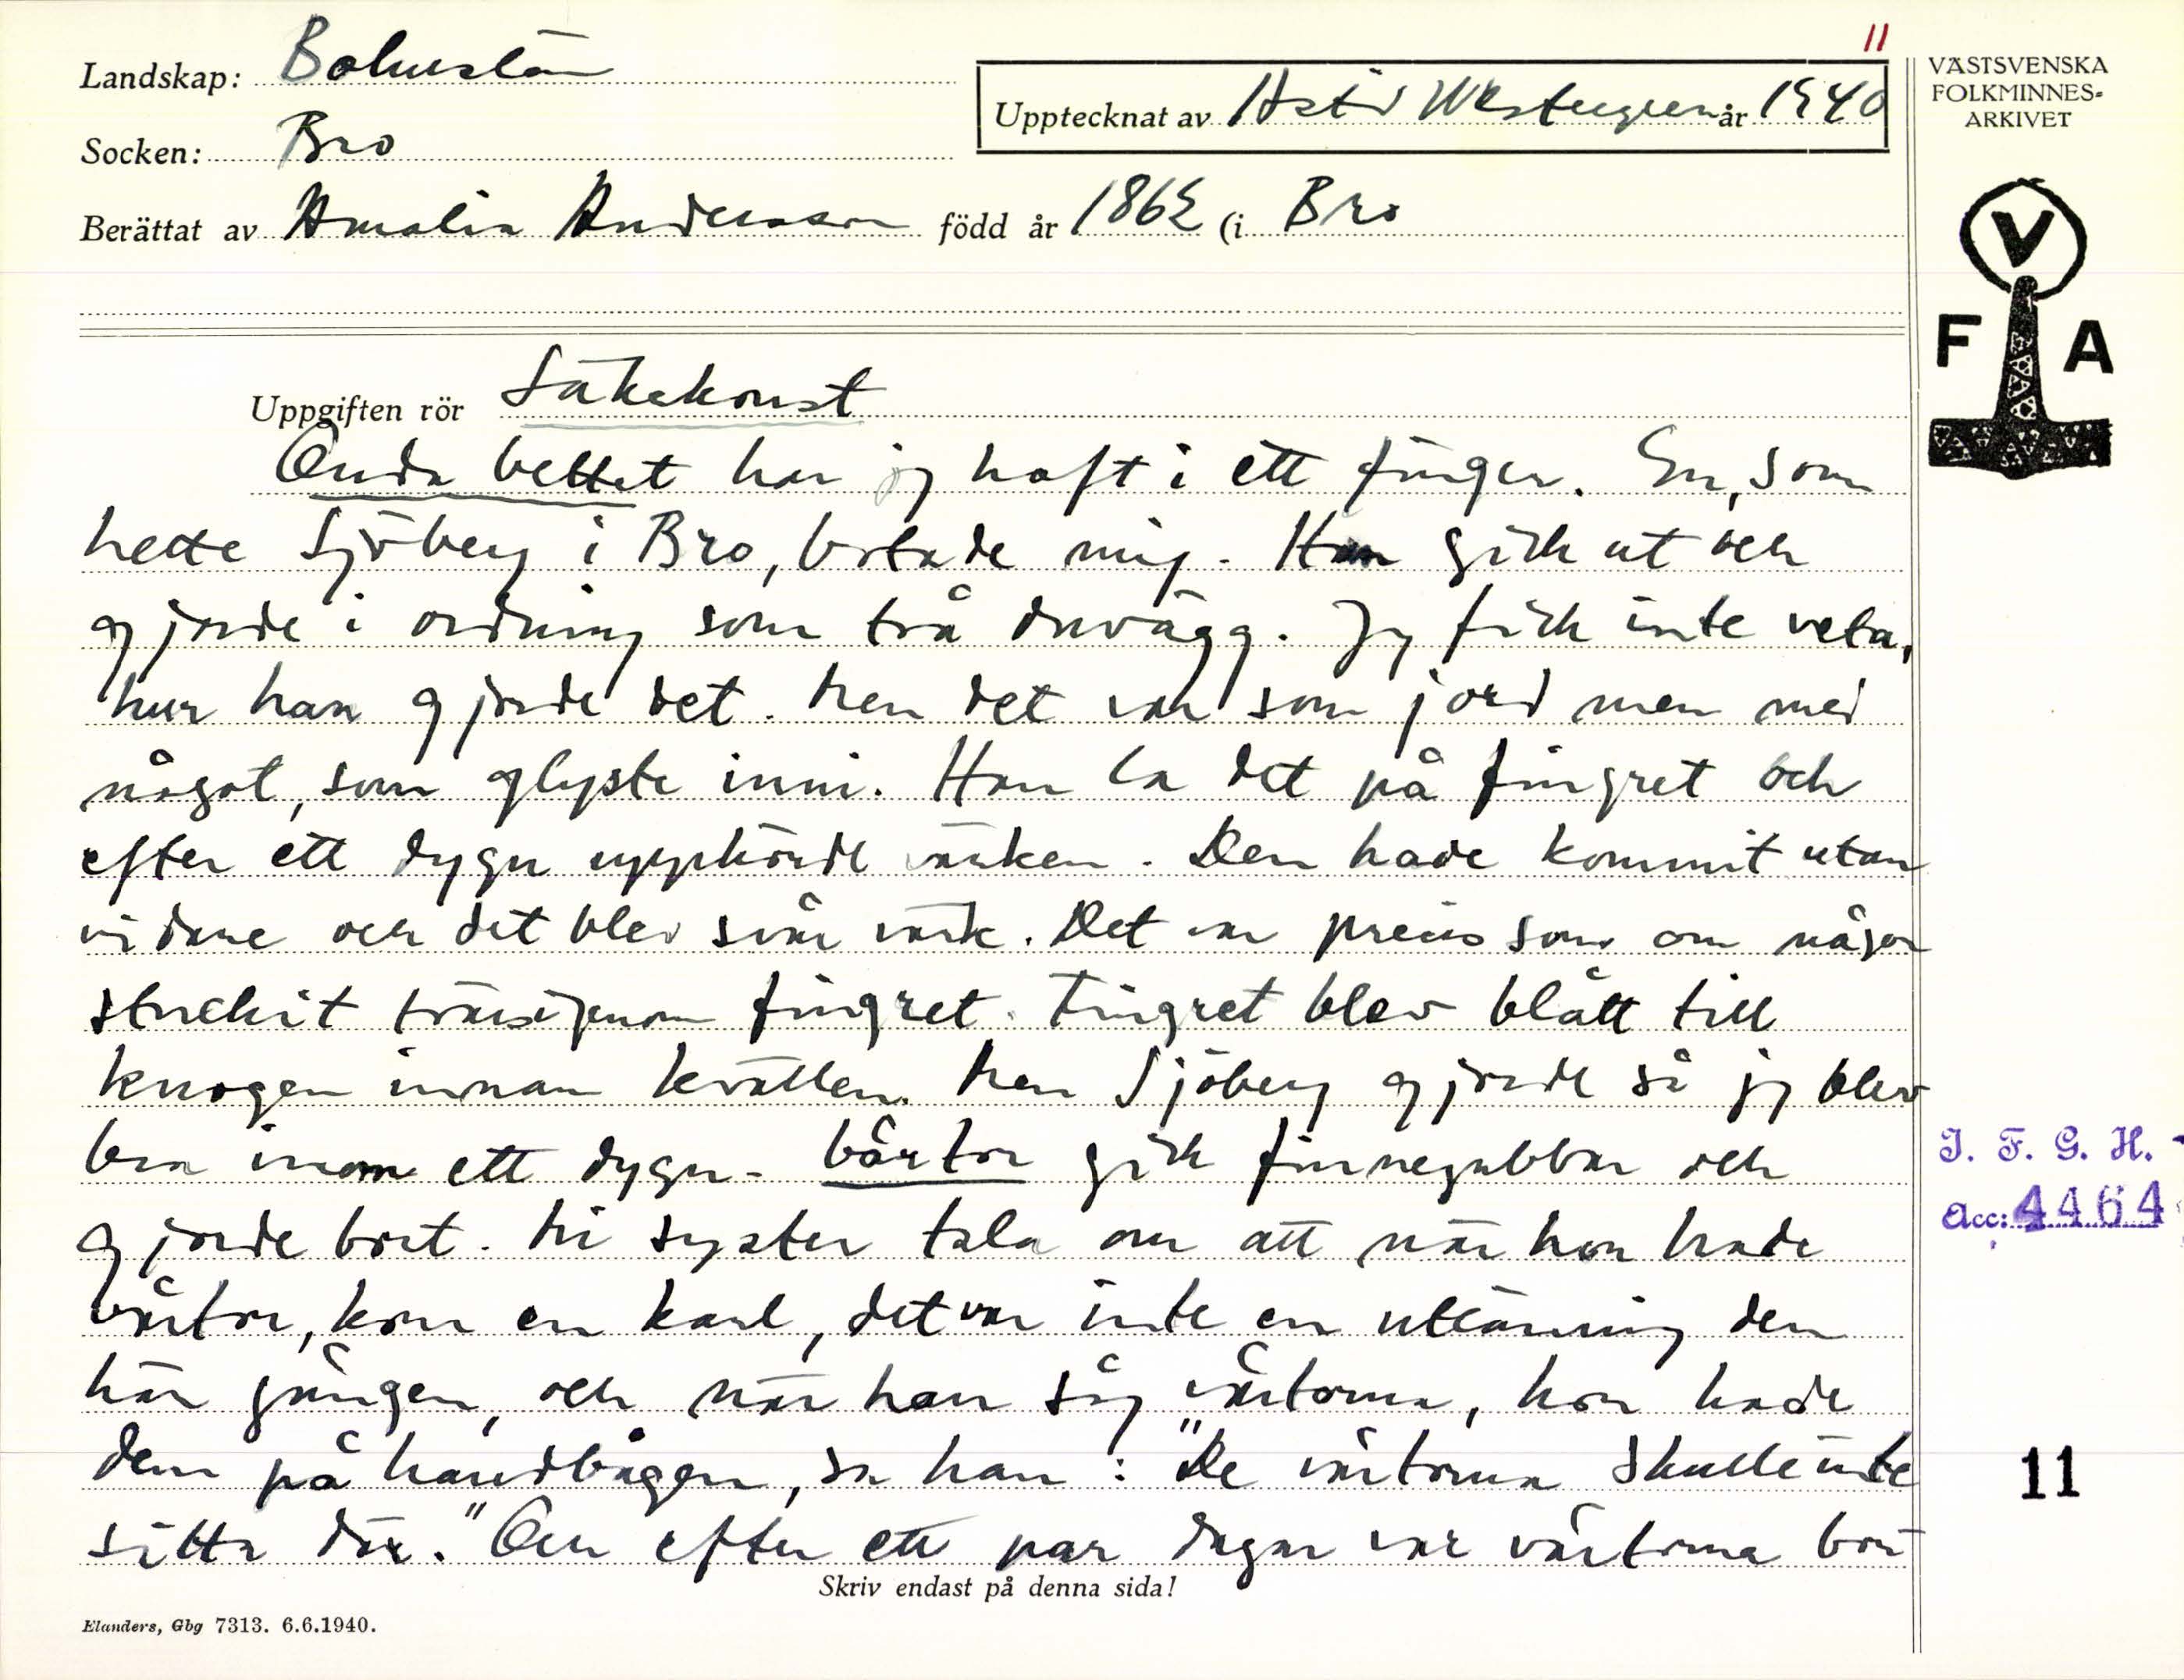 11
Landskap: Bohuslän
Upptecknat av Astrid Westergren år 1940
VÄSTSVENSKA
FOLKMINNES-
ARKIVET
Socken: Bro
Berättat av Amalia Andersson född år 1862 (i Bro
V
F A
Uppgiften rör Läkekonst
Onda bettet har jg haft i ett finger. En, som
hette Sjöberg i Bro, botade mig. Han gick ut och
gjorde i ordning som två Jg fick inte veta,
hur han gjorde det. Men det var som jord men med
något, som glyste inni. Han la det på fingret och
efter ett dygn upphörde värken. Den hade kommit utan
vidare och det blev svår värk. Det var precis som om någon
stuckit tvärsigenom fingret. Fingret blev blått till
knogen innan kvällen. Men Sjöberg gjorde så jg blev
bra inom ett dygn. Vårtor gick finnegubbar och
gjorde bort. Mi syster tala om att när hon hade
vårtor, kom en karl, det var inte en utlänning den
här gången, och när han såg vårtorna, hon hade
dem på handbågen, sa han: "De vårtorna skulle inte
sitta där." Och efter ett par dagar var vårtorna bort
Skriv endast på denna sida!
Elanders, Gbg 7313. 6.6.1940.
I. F. G. H.
Acc: 4464
11